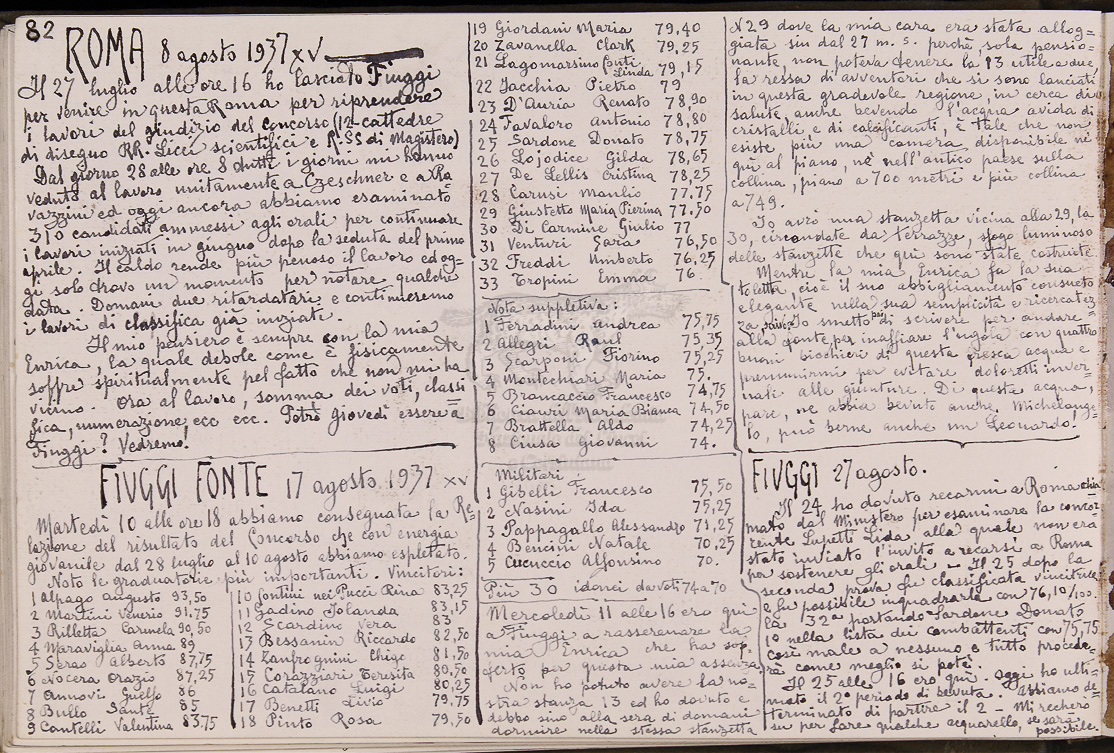 82
ROMA 8 agosto 1937 XV
Il 27 luglio alle ore 16 ho lasciato Fiuggi
per venire in questa Roma per riprendere
i lavori del giudizio del concorso (12 cattedre
di disegno RR. Licei scientifici e R. SS di Magistero)
Dal giorno 28 alle ore 8 tutti i giorni mi hanno
veduto al lavoro unitamente a Czeschner e a Ra=
vazzini ed oggi ancora abbiamo esaminato
310 candidati ammessi agli orali per continuare
i lavori iniziati in giugno dopo la seduta del primo
aprile. Il caldo rende più penoso il lavoro ed og=
gi solo trovo un momento per notare qualche
data. Domani due ritardatari e continueremo
i lavori di classifica già iniziati.
Il mio pensiero è sempre con la mia
Enrica, la quale debole come è fisicamente
soffre spiritualmente pel fatto che non mi ha
vicino. Ora al lavoro, somma dei voti, classi
fica, numerazione ecc ecc. Potrò giovedì essere a
Fiuggi? Vedremo!
FIUGGI FONTE 17 agosto 1937 XV
Martedì 10 alle ore 18 abbiamo consegnata la Re=
lazione del risultato del Concorso che con energia
giovanile dal 28 luglio al 10 agosto abbiamo espletato.
Noto le graduatorie più importanti. Vincitori:
1 Alpago Augusto 93,50
2 Martini Venerio 91,75
3 Rilletta Carmela 90,50
4 Maraviglia Anna 89
5 Serao Alberto 87,75
6 Nocera Orazio 87,25
7 Annovi Guelfo 86
8 Bullo Sante 85
9 Cantelli Valentina 83,75
10 Contini nei Pucci Rina 83,25
11 Gadino Iolanda 83,15
12 Scardino Vera 83
13 Bessanin Riccardo 82,50
14 Zanfrognini Ghigo 81,50
15 Corazziari Teresita 80,50
16 Catalano Luigi 80,25
17 Benetti Livio 79,75
18 Pinto Rosa 79,50
19 Giordani Maria 79,40
20 Zavanella Clark 79,25
21 Lagomarsino Conti Linda 79,15
22 Jacchia Pietro 79,
23 D'Auria Renato 78,90
24 Favaloro Antonio 78,80
25 Sardone Donato 78,75
26 Lojodice Gilda 78,65
27 De Lellis Cristina 78,25
28 Carusi Manlio 77,75
29 Giustetto Maria Pierina 77,50
30 Di Carmine Giulio 77
31 Venturi Sara 76,50
32 Freddi Umberto 76,25
33 Tropini Emma 76
Nota suppletiva:
1 Ferradini Andrea 75,75
2 Allegri Raul 75,35
3 Scarponi Fiorino 75,25
4 Montechiari Maria 75.
5 Broncaccio Francesco 74,75
6 Ciauri Maria Bianca 74,50
7 Brattella Aldo 74,25
8 Ciusa Giovanni 74.
Militari
1 Gibelli Francesco 75,50
2 Nasini Ida 75,25
3 Pappagallo Alessandro 71,25
4 Bencini Natale 70,25
5 Cucuccio Alfonsino 70.
Più 30 idonei da voti 74 a 70
Mercoledì 11 alle 16 ero qui
a Fiuggi a rasserenare la
mia Enrica che ha sof=
ferto per questa mia assenza.
Non ho potuto avere la no=
stra stanza 13 ed ho dovuto e
debbo sino alla sera di domani
dormire nella stessa stanzetta
N 29 dove la mia cara era stata allog=
giata sin dal 27 m. s. perchè, sola pensio=
nante, non poteva tenere la 13 utile a due,
la ressa di avventori che si sono lanciati
in questa gradevole regione, in cerca di
salute, anche bevendo l'acqua avida di
cristalli, e di calcificanti, è tale che non
esiste più una camera disponibile nè
quì al piano, nè nell'antico paese sulla
collina, piano a 700 metri e più collina
a 749.
Io avrò una stanzetta vicina alla 29, la
30, circondate da terrazze, sfogo luminoso
delle stanzette che quì sono state costruite.
Mentre la mia Enrica fa la sua
toletta, cioè il suo abbigliamento consueto
elegante nella sua semplicità e ricercatez
za, io smetto poi di scrivere per andare
alla fonte, per inaffiare l'ugola con quattro
buoni bicchieri di questa fresca acqua e
premunirmi per evitare doloretti inver=
nali alle giunture. Di questa acqua,
pare, ne abbia bevuto anche Michelange=
lo, può berne anche un Leonardo!
FIUGGI 27 agosto.
Il 24 ho dovuto recarmi a Roma chia
mato dal Ministero per esaminare la concor=
rente Lupetti Lida alla quale non era
stato inviato l'invito a recarsi a Roma
per sostenere gli orali - Il 25 dopo la
seconda prova fu classificata vincitrice
e fu possibile inquadrarla con 76,10/100.
la 32ª portando Sardone Donato
1º nella lista dei combattenti con 75,75
Così male a nessuno e tutto procede=
rà come meglio si potè.
Il 25 alle 16 ero quì. Oggi ho ulti=
mato il 2º periodo di bevuta. Abbiamo de=
terminato di partire il 2 - Mi rechero
su per fare qualche acquarello, se sarà
possibile.